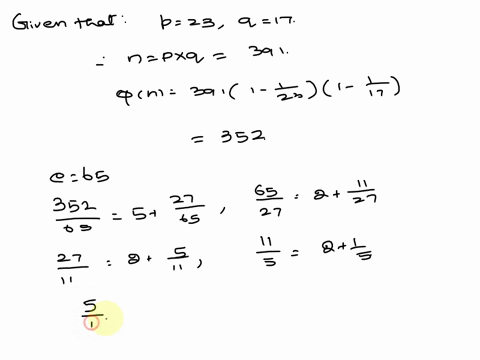 Given that: p=23, q=17.
∴ n=p×q = 391.
φ(n) = 391(1-1/23)(1-1/17)
= 352
e=65
352/65 = 5+ 27/65, 65/27 = 2+ 11/27
27/11 = 2+ 5/11, 11/5 = 2+1/5
5/1